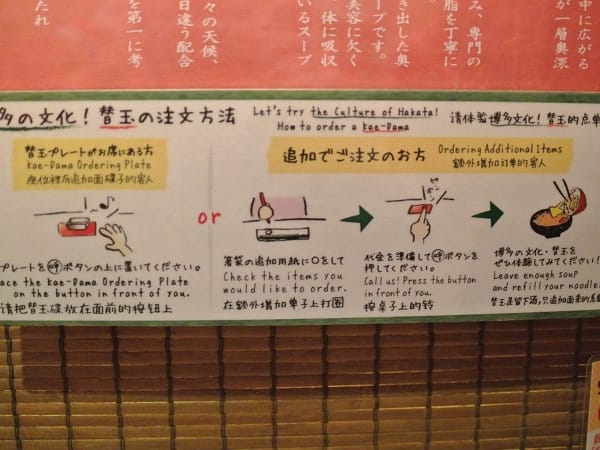 中に広がる
が一層奥深
み、専門の
脂を丁寧に
き出した奥
ープです。
美容に欠く
、体に吸収
いるスープ
々の天候、
日違う配合
を第一に考
たれ
多の文化！替玉の注文方法
Let's try the Culture of Hakata!
How to order a Kae-Dama
请体验博多文化！替玉的点单
替玉プレートがお席にある方
Kae-Dama Ordering Plate
座位裡有追加面碟子的客人
追加でご注文のお方
Ordering Additional Items
額外增加订单的客人
or
ピンポーン
プレートを呼ボタンの上に置いてください。
ace the Kae-Dama Ordering Plate
on the button in front of you.
请把替玉碟放在面前的按钮上
箸袋の追加用紙に○をして
Check the items you
would like to order.
在額外增加单子上打圈
代金を準備して呼ボタンを
押してください。
Call us! Press the button
in front of you.
按桌子上的铃
博多の文化・替玉を
ぜひ体験してみてください!
Leave enough soup
and refill your noodle.
替玉是留下汤,只追加面来的系统